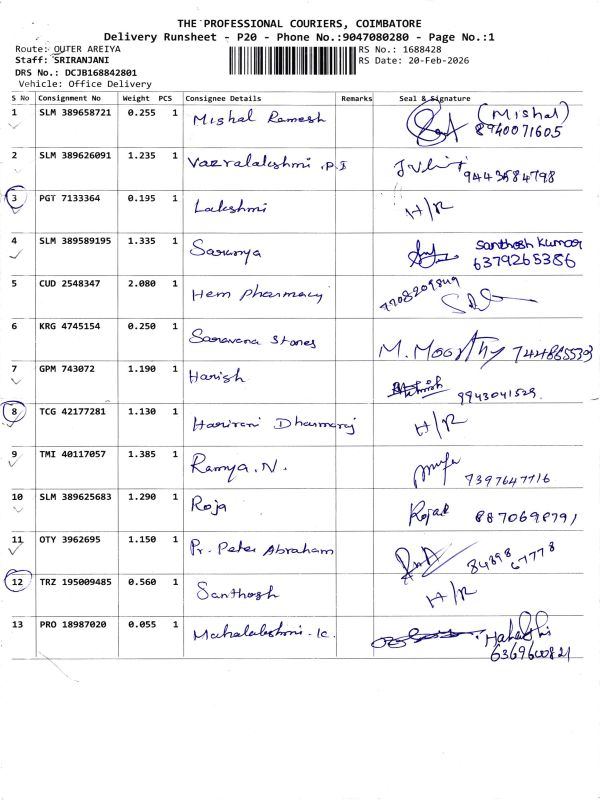 THE PROFESSIONAL COURIERS, COIMBATORE
Delivery Runsheet - P20 - Phone No.:9047080280 - Page No.:1
Route: OUTER AREIYA RS No.: 1688428
Staff: SRIRANJANI RS Date: 20-Feb-2026
DRS No.: DCJB168842801
Vehicle: Office Delivery
S No Consignment No Weight PCS Consignee Details Remarks Seal & Signature
1 SLM 389658721 0.255 1 Mishal Ramesh (Mishal)
8940071605
2 SLM 389626091 1.235 1 Vazralakshmi .P.I
9443584798
3 PGT 7133364 0.195 1 Lakshmi H/R
4 SLM 389589195 1.335 1 Saranya Santhosh Kumar
6379265386
5 CUD 2548347 2.080 1 Hem pharmacy
6 KRG 4745154 0.250 1 Saravana Stones M. Moorthy
7 GPM 743072 1.190 1 Harish 9943041529.
8 TCG 42177281 1.130 1 Harirani Dharmaraj H/R
9 TMI 40117057 1.385 1 Ramya.N. 7397647716
10 SLM 389625683 1.290 1 Roja
11 OTY 3962695 1.150 1 Pr. Peter Abraham 84898 67778
12 TRZ 195009485 0.560 1 Santhosh H/R
13 PRO 18987020 0.055 1 Mahalakshmi.K.
6369600821